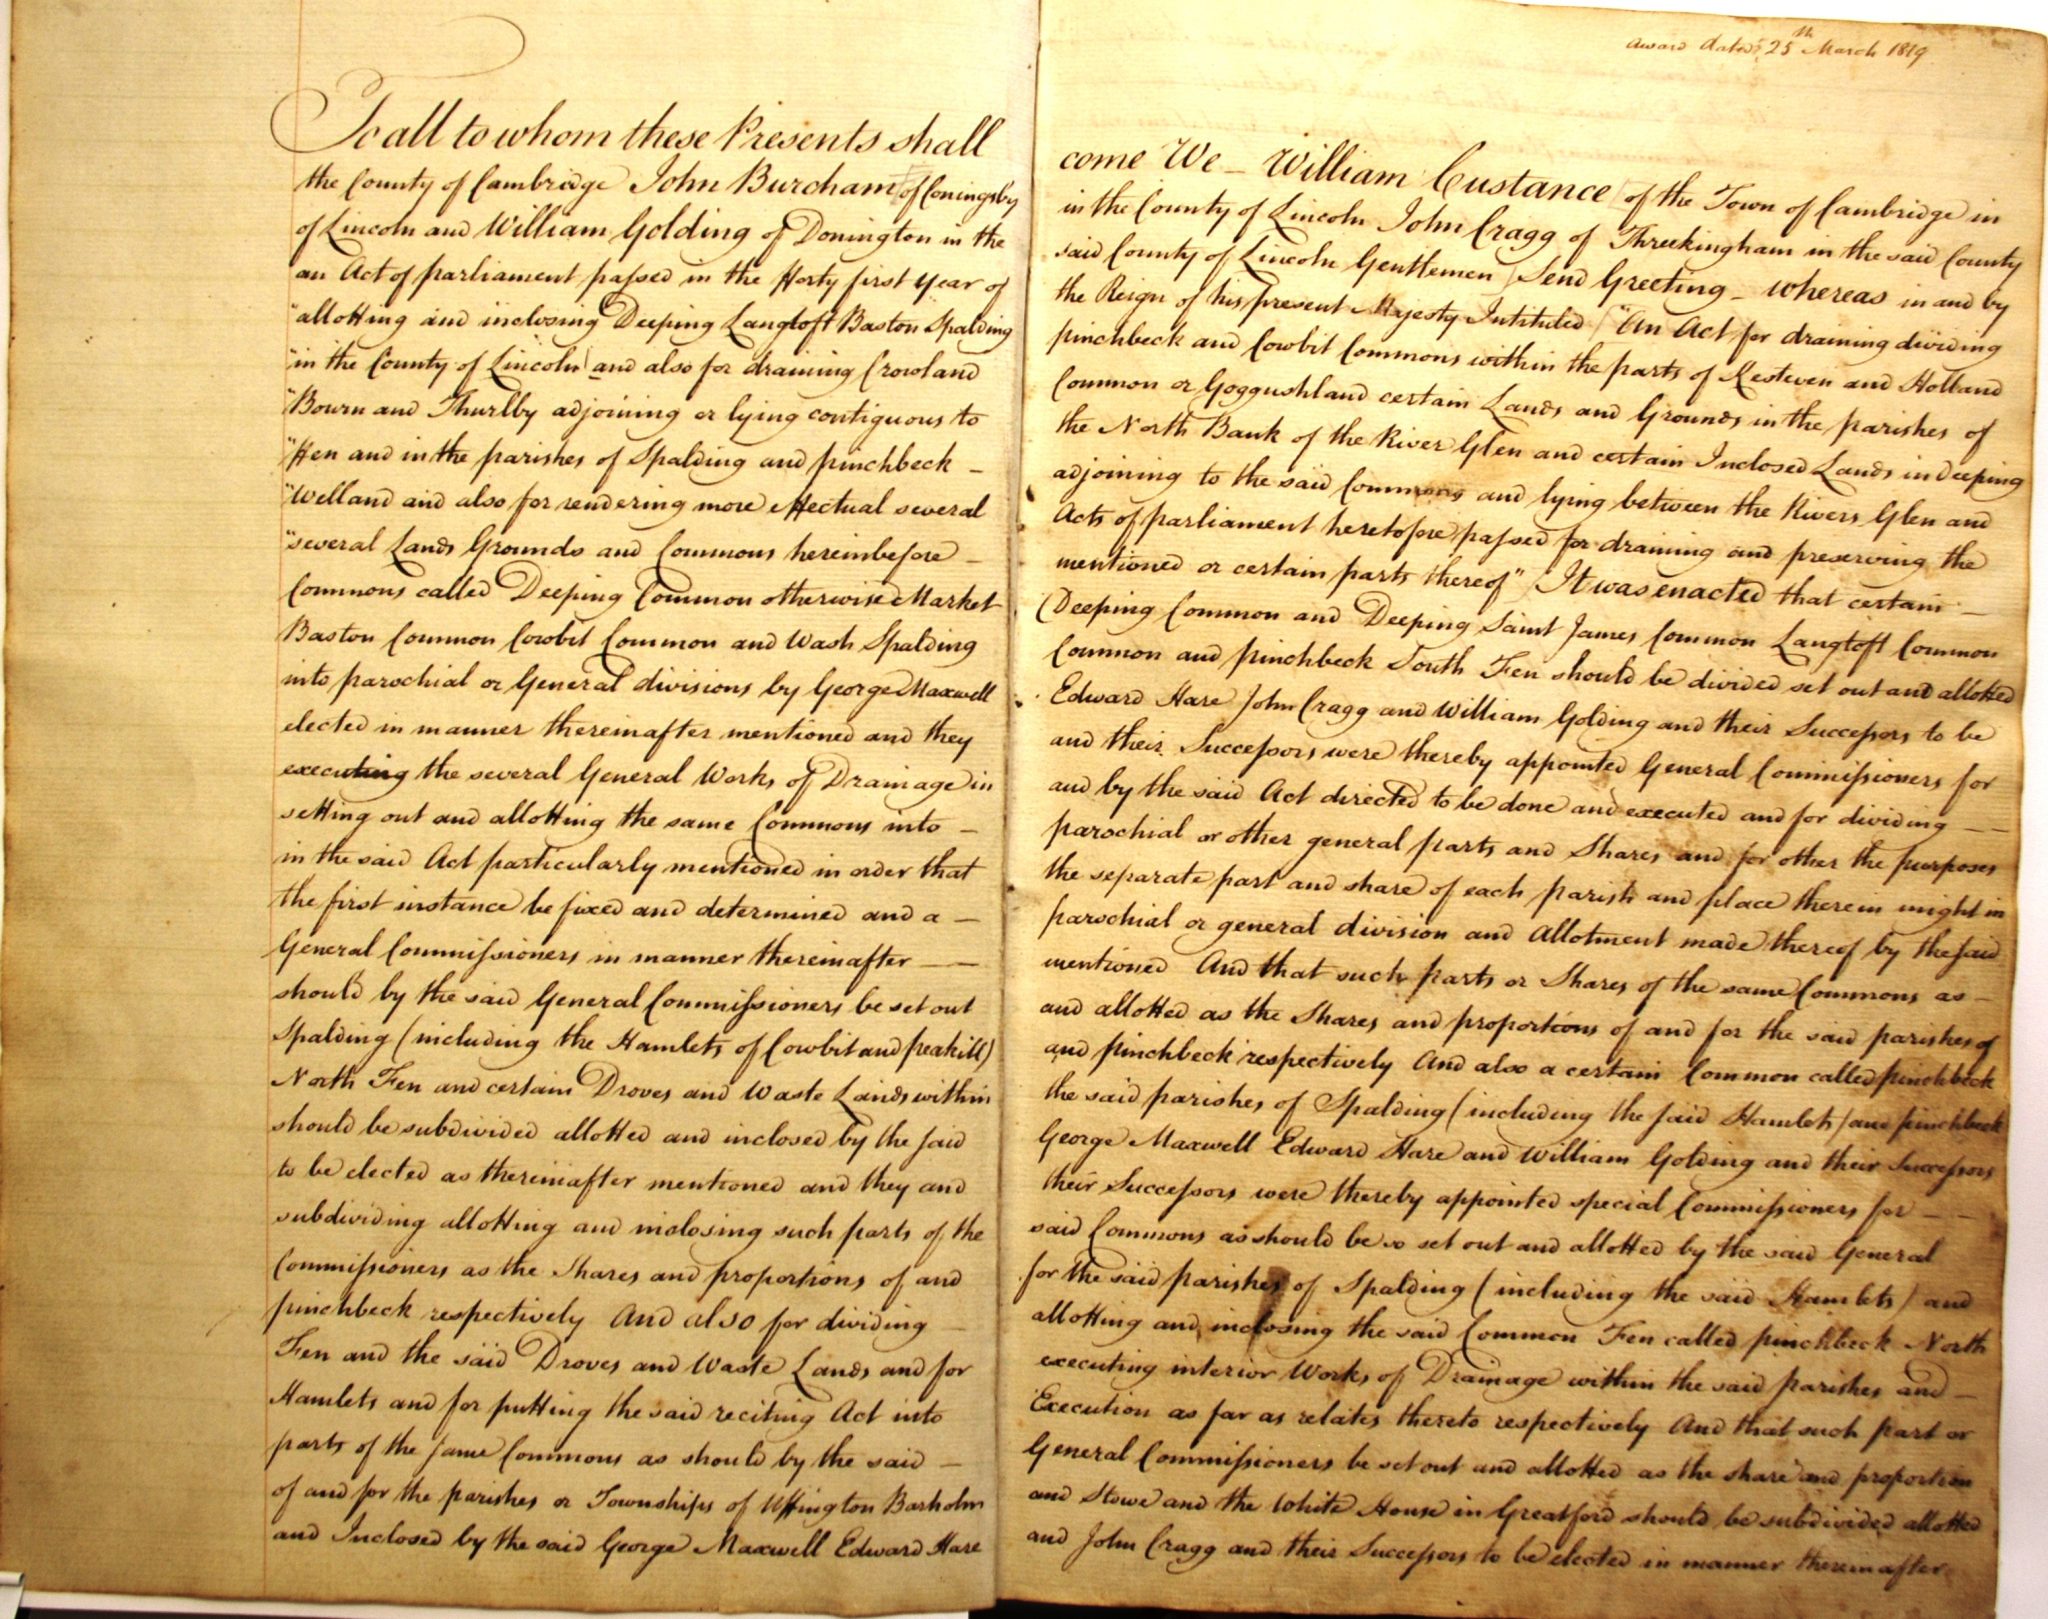 Award dated 25th March 1819
To all to whom these Presents shall
come We – William Custance of the Town of Cambridge in
the County of Cambridge John Burcham of Coningsby
in the County of Lincoln John Cragg of Threekingham in the said County
of Lincoln and William Golding of Donington in the
said County of Lincoln Gentlemen Send Greeting – Whereas in and by
an Act of parliament passed in the Forty first year of
the Reign of his present Majesty Intituled "An Act for draining dividing
"allotting and inclosing Deeping Langtoft Baston Spalding
pinchbeck and Cowbit Commons within the parts of Kesteven and Holland
"in the County of Lincoln and also for draining Crowland
Common or Goggushland certain Lands and Grounds in the parishes of
"Bourn and Thurlby adjoining or lying contiguous to
the North Bank of the River Glen and certain Inclosed Lands in Deeping
"Fen and in the parishes of Spalding and pinchbeck –
adjoining to the said Commons and lying between the Rivers Glen and
"Welland and also for rendering more effectual several
Acts of parliament heretofore passed for draining and preserving the
"several Lands Grounds and Commons hereinbefore –
mentioned or certain parts thereof" It was enacted that certain –
Commons called Deeping Common otherwise Market
Deeping Common and Deeping Saint James Common Langtoft Common
Baston Common Cowbit Common and Wash Spalding
Common and pinchbeck South Fen should be divided set out and allotted
into parochial or General divisions by George Maxwell
Edward Hare John Cragg and William Golding and their Successors to be
elected in manner thereinafter mentioned and they
and their Successors were thereby appointed General Commissioners for
executing the several General Works of Drainage in
and by the said Act directed to be done and executed and for dividing – –
setting out and allotting the same Commons into –
parochial or other general parts and Shares and for other the purposes
in the said Act particularly mentioned in order that
the separate part and share of each parish and place therein might in
the first instance be fixed and determined and a –
parochial or general division and Allotment made thereof by the said
General Commissioners in manner thereinafter – –
mentioned And that such parts or Shares of the same Commons as –
should by the said General Commissioners be set out
and allotted as the Shares and proportions of and for the said parishes of
Spalding (including the Hamlets of Cowbit and peakill)
and pinchbeck respectively And also a certain Common called pinchbeck
North Fen and certain Droves and Waste Lands within
the said parishes of Spalding (including the said Hamlets) and pinchbeck
should be subdivided allotted and inclosed by the said
George Maxwell Edward Hare and William Golding and their Successors
to be elected as thereinafter mentioned and they and
their Successors were thereby appointed special Commissioners for – –
subdividing allotting and inclosing such parts of the
said Commons as should be so set out and allotted by the said General
Commissioners as the Shares and proportions of and
for the said parishes of Spalding (including the said Hamlets) and
pinchbeck respectively And also for dividing –
allotting and inclosing the said Common Fen called pinchbeck North
Fen and the said Droves and Waste Lands and for
executing interior Works of Drainage within the said parishes and –
Hamlets and for putting the said reciting Act into
Execution as far as relates thereto respectively And that such part or
parts of the same Commons as should by the said –
General Commissioners be set out and allotted as the share and proportion
of and for the parishes or Townships of Uffington Barholm
and Stowe and the White House in Greatford should be subdivided allotted
and Inclosed by the said George Maxwell Edward Hare
and John Cragg and their Successors to be elected in manner thereinafter